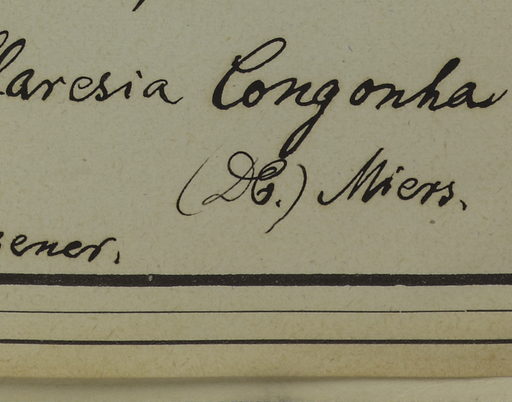 laresia Congonha
(DC.) Miers.
ener.